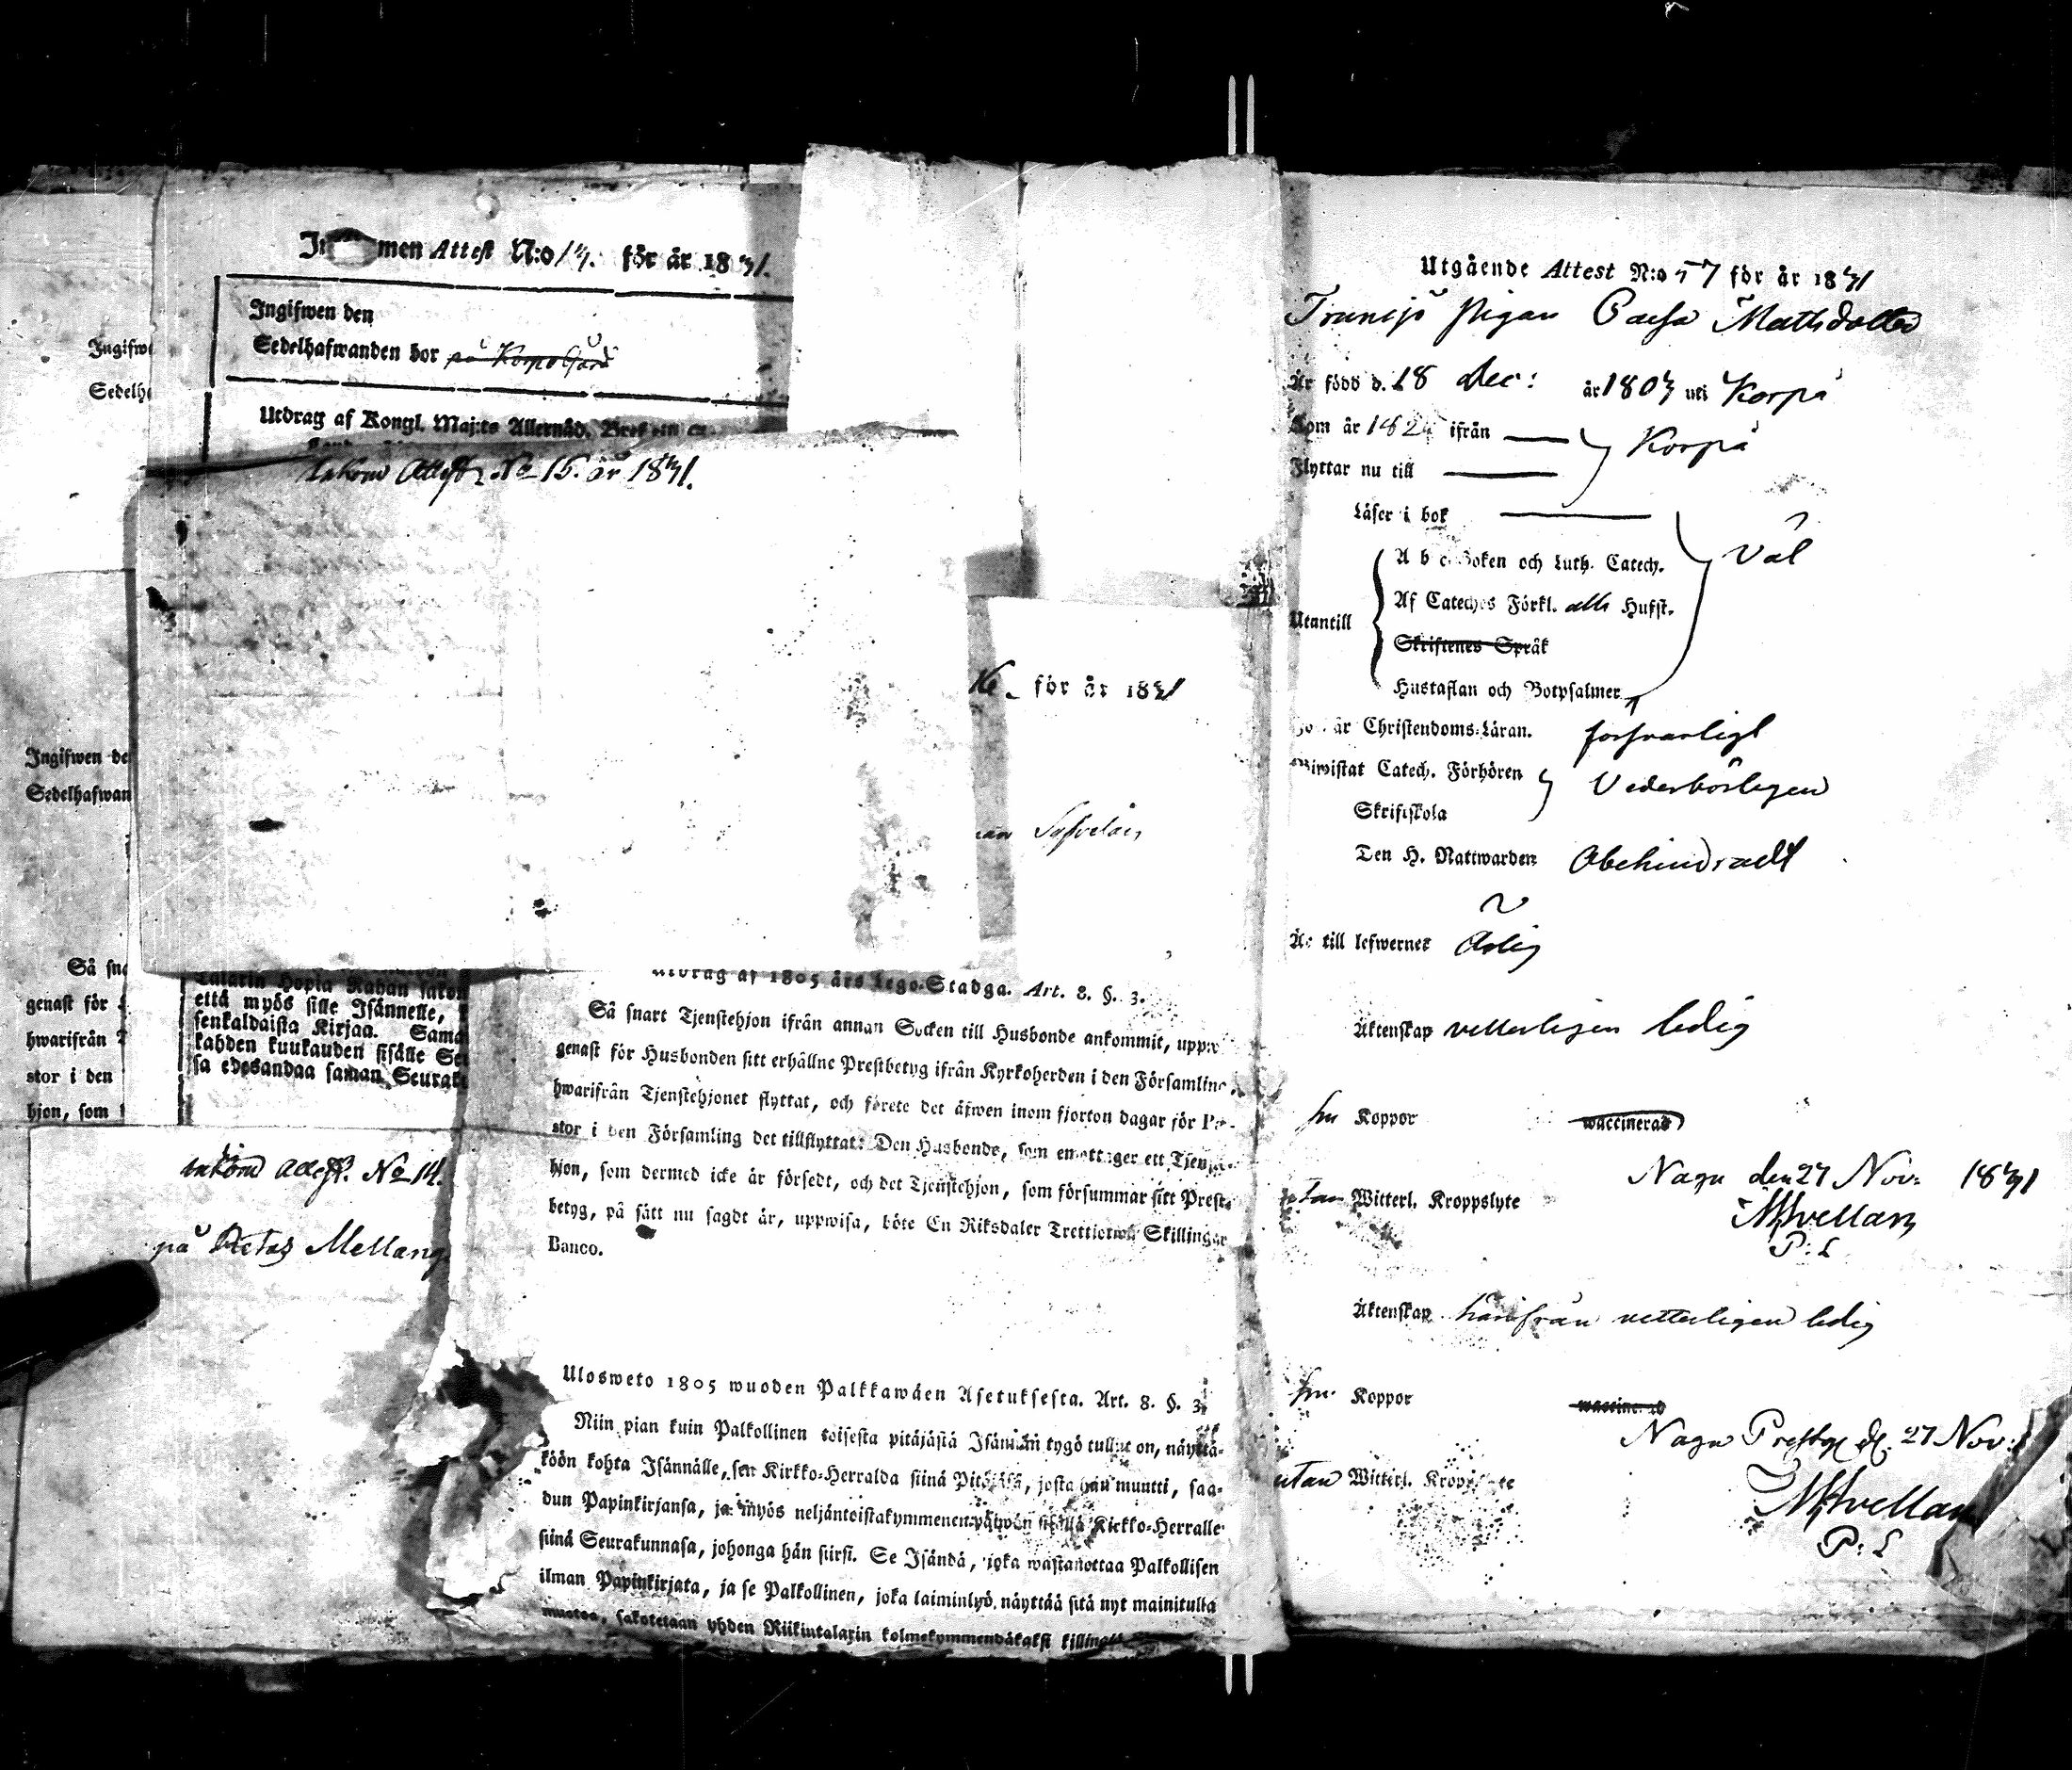 Attest N:o 17. för år 1831.
Ingifwen den
Sedelhafwanden bor på Korpo Gård
Utdrag af Kongl. Maj:ts Allernåd.
Inkom Attest No 15. år 1831.
Ingifw
Sedelh
16. för år 1831
Ingifwen de
Sedelhafwan
Så sna
genast för
hwarifrån
stor i den
hjon, som
Talarin Hopia Rahan
että myös sille Isännelle,
senkaldaista Kirjaa. Sama
kahden kuukauden sisälle Seu
sa edesandaa saman Seurak
inkom attest. No 14.
på Retas Mellang
Utdrag af 1805 års Lego-Stadga. Art. 8. §. 3.
Så snart Tjenstehjon ifrån annan Socken till Husbonde ankommit, uppw
genast för Husbonden sitt erhållne Prestbetyg ifrån Kyrkoherden i den Församling
hwarifrån Tjenstehjonet flyttat, och förete det äfwen inom fjorton dagar för Pa-
stor i den Församling det tillflyttat: Den Husbonde, som emottager ett Tjenste-
hjon, som dermed icke är försedt, och det Tjenstehjon, som försummar sitt Prest-
betyg, på sätt nu sagdt är, uppwisa, böte En Riksdaler Trettiotwå Skillingar
Banco.
Ulosweto 1805 wuoden Palkkawäen Asetuksesta. Art. 8. §. 3.
Niin pian kuin Palkollinen toisesta pitäjästä Isännän tygö tullut on, näyttä-
köön kohta Isännälle, sen Kirkko-Herralda siinä Pitäjäsä, josta hän muutti, saa-
dun Papinkirjansa, ja myös neljäntoistakymmenen päiwän sisällä Kirkko-Herralle
siinä Seurakunnasa, johonga hän siirsi. Se Isändä, joka wastanottaa Palkollisen
ilman Papinkirjata, ja se Palkollinen, joka laiminlyö näyttää sitä nyt mainitulla
muotoa, sakotetaan yhden Riikintalarin kolmekymmendäkaksi killingi
Utgående Attest N:o 57 för år 1831
Pigan Caisa Mattsdotter
Är född d. 18 Dec: år 1803 uti Korpo
Kom år 182 ifrån
Flyttar nu till
Korpo
Läser i bok
Utantill
A b c-Boken och Luth. Catech.
Af Cateches Förkl. alla Hufst.
Skriftenes Språk
Hustaflan och Botpsalmer
Väl
Christendoms-Läran. försvarligt
Biwistat Catech. Förhören
Skriftskola
Vederbörligen
Den H. Nattwarden Obehindradt
Är till lefwernet Ärlig
Äktenskap vetterligen ledig
haft Koppor waccinerad
Nagu den 27 Nov: 1831
utan Witterl. Kroppslyte
P: L
Äktenskap härifrån vetterligen ledig
haft Koppor waccinerad
Nagu Prestg. d. 27 Nov:
utan Witterl. Kroppslyte
P: L